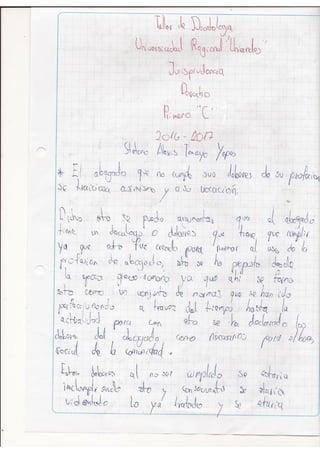 Taller de Deontología
Universidad Regional "Uniandes"
Jurisprudencia
Derecho
Primero "C"
2016 - 2017
Stefano Alexis Tamayo Yepes
* El abogado que no cumple sus deberes de su profesion
se traiciona asimismo y a su vocación.
Dicho esto se puede argumentar que el abogado
tiene un decalogo o deberes que tiene que cumplir
ya que esto fue creado para al uso de la
profesion de abogado, esto se ha desde
la epoca greco romana ya que ahi se formo
esto como un conjunto de normas que se han ido
perfeccionando a traves del tiempo hasta la
actualidad para con esto se ha declarado los
deberes del abogado como necesarios para el bien
social de la comunidad.
Estos deberes al no ser cumplido se estaria
incumpliendo esto y se estaria
violentado lo ya tratado y se estaria